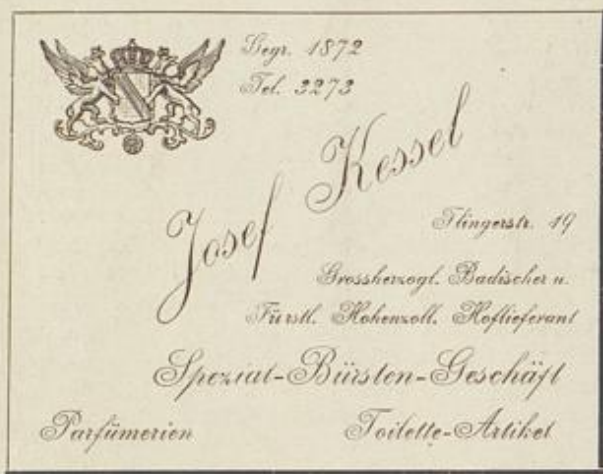 Gegr. 1872
Tel. 3273
Josef Kessel
Flingerstr. 19
Grossherzogl. Badischer u.
Fürstl. Hohenzoll. Hoflieferant
Spezial-Bürsten-Geschäft
Parfümerien
Toilette-Artikel